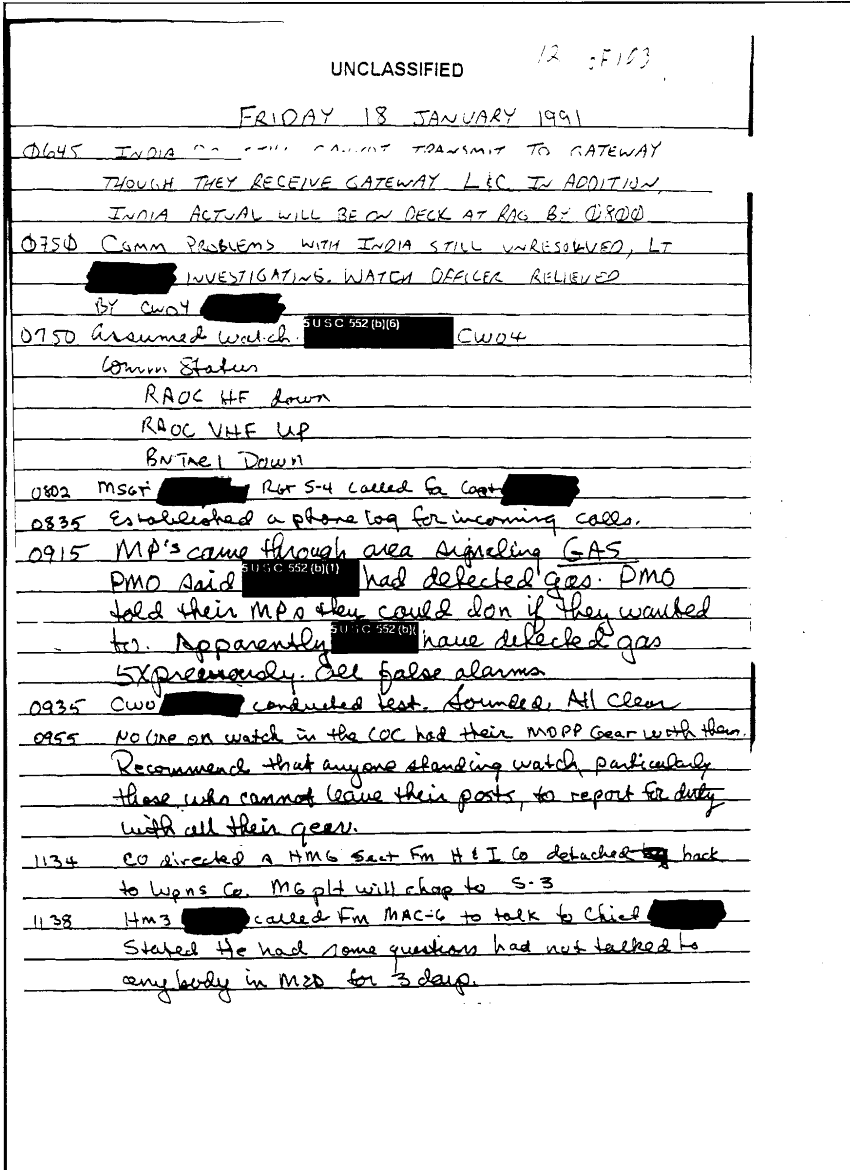 12 OF 103
UNCLASSIFIED
FRIDAY 18 JANUARY 1991
0645 INDIA CANNOT TRANSMIT TO GATEWAY
THOUGH THEY RECEIVE GATEWAY L&C. IN ADDITION,
INDIA ACTUAL WILL BE ON DECK AT RAG BY 0800
0750 COMM PROBLEMS WITH INDIA STILL UNRESOLVED, LT
INVESTIGATING. WATCH OFFICER RELIEVED
BY CWO4
0750 Assumed watch. 5 U S C 552 (b)(6) CWO4
Comm Status
RAOC HF down
RAOC VHF UP
BN TAC 1 Down
0802 MSGT Rgt S-4 called for Capt
0835 Established a phone log for incoming calls.
0915 MP's came through area signaling GAS
PMO said 5 U S C 552 (b)(1) had detected gas. PMO
told their MPs they could don if they wanted
to. Apparently 5 U S C 552 (b)( have detected gas
5X previously. All false alarms
0935 CWO conducted test. Sounded, All Clear
0955 No one on watch in the COC had their MOPP Gear with them.
Recommend that anyone standing watch, particularly
those who cannot leave their posts, to report for duty
with all their gear.
1134 CO directed a HMG Sect Fm H & I Co detached back
to Wpns Co. MG plt will chop to S-3
1138 Hm3 called Fm MAC-6 to talk to Chief
Stated He had some questions had not talked to
anybody in MED for 3 days.